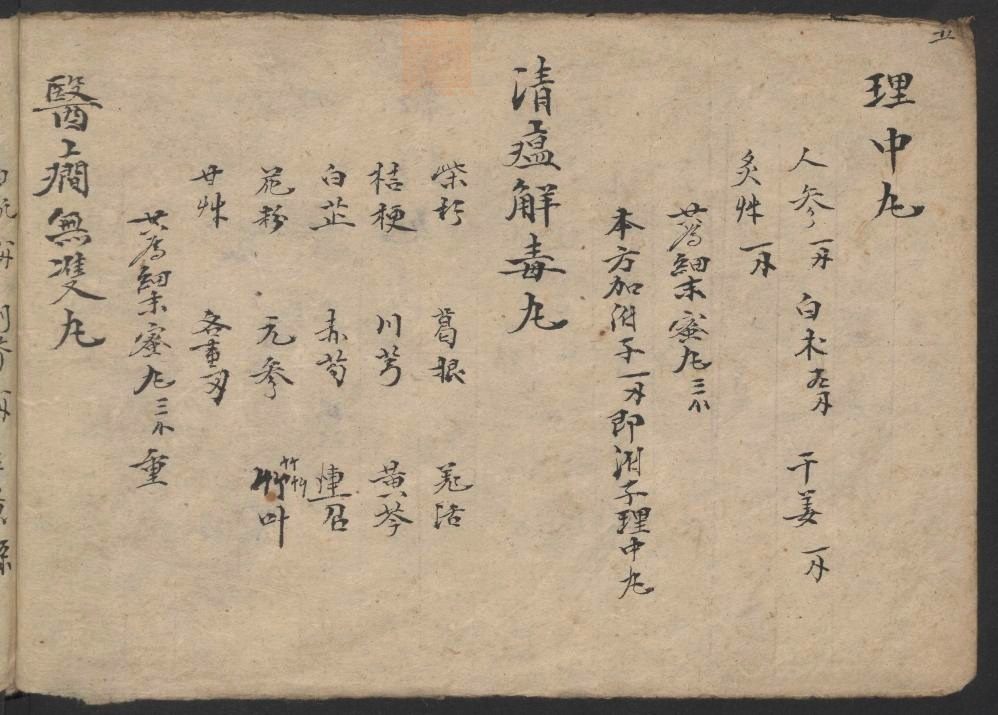 理中丸
人參一两 白朮 干姜 一两
炙艸 一两
共為細末蜜丸三小
本方加附子一两即附子理中丸
清瘟解毒丸
柴胡 葛根 羌活
桔梗 川芎 黃芩
白芷 赤芍 連召
花粉 元參 竹叶
甘艸 各
共為細末蜜丸三小重
醫癇無雙丸